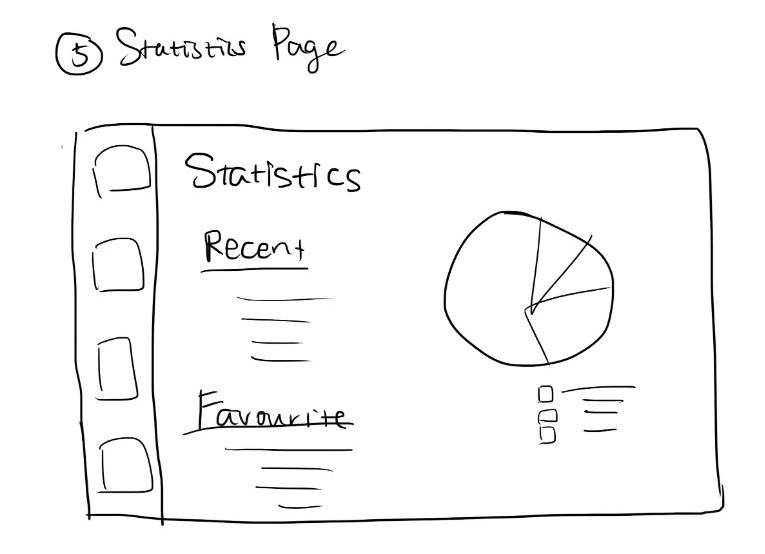 ⑤ Statistics Page
Statistics
Recent
Favourite